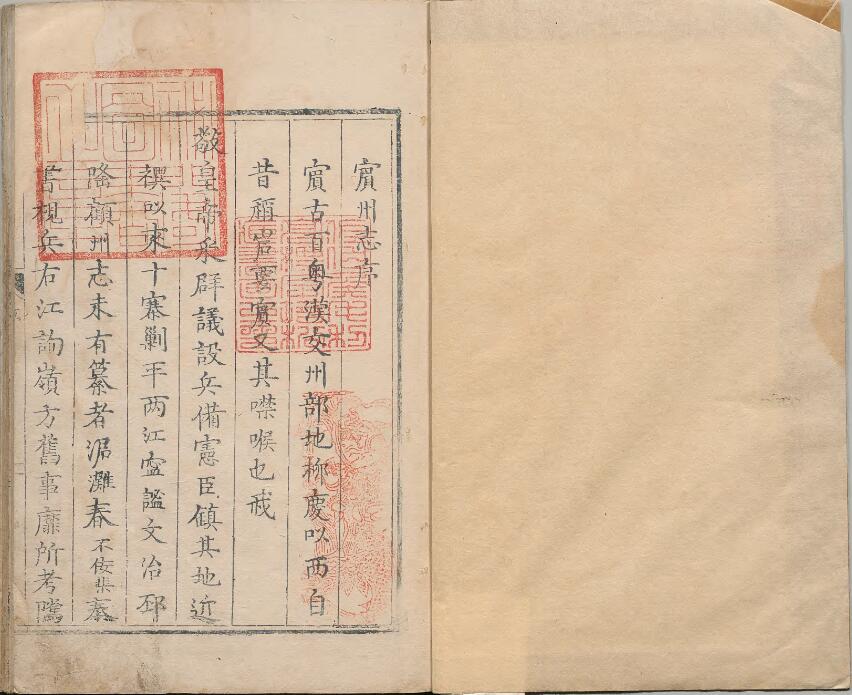 賔州志序
賔古百粤漢交州部地栁慶以西自
昔稱岩要賔又其噤喉也我
敬皇帝采群議設兵備憲臣鎮其地近
禩以來十寨剿平两江寍謐文治郅
隆顧州志未有纂者涒灘春不佞棐奉
書視兵右江詢嶺方舊事靡所考隲